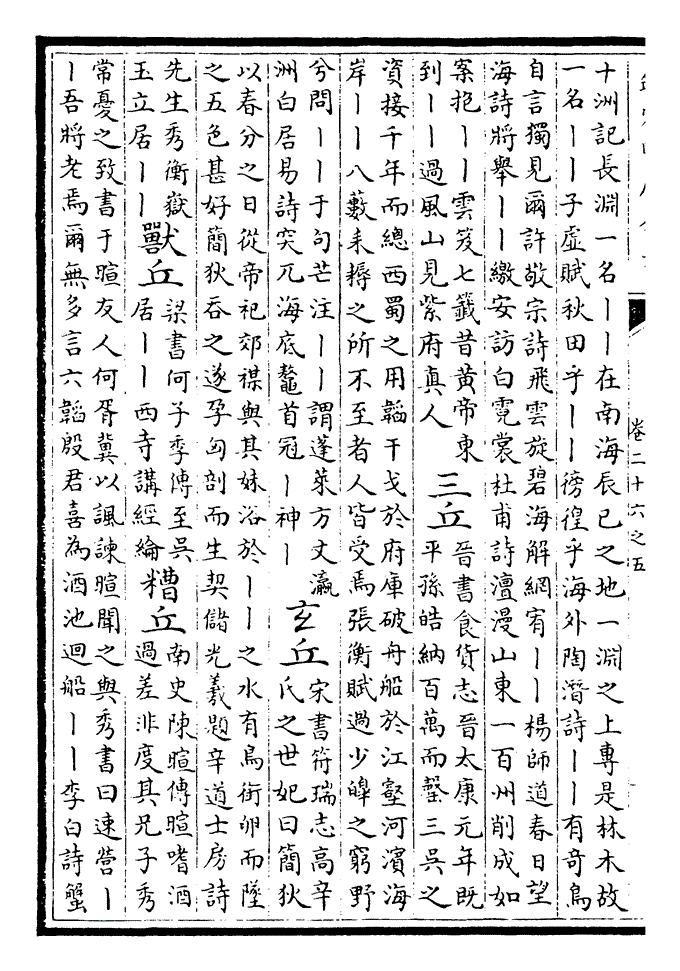 卷二十六之五
十洲記長淵一名丨丨在南海辰巳之地一淵之上專是林木故
一名丨丨子虛賦秋田乎丨丨徬徨乎海外陶潛詩丨丨有奇鳥
自言獨見爾許敬宗詩飛雲旋碧海解網宥丨丨楊師道春日望
海詩將舉丨丨繳安訪白霓裳杜甫詩澶漫山東一百州削成如
案抱丨丨雲笈七籤昔黃帝東
到丨丨過風山見紫府真人
三丘
晉書食貨志晉太康元年既
平孫皓納百萬而罄三吳之
資接千年而總西蜀之用韜干戈於府庫破舟船於江壑河濱海
岸丨丨八藪耒耨之所不至者人皆受焉張衡賦過少皞之窮野
兮問丨丨于句芒注丨丨謂蓬萊方丈瀛
洲白居易詩突兀海底鼇首冠丨神丨
玄丘
宋書符瑞志高辛
氏之世妃曰簡狄
以春分之日從帝祀郊禖與其妹浴於丨丨之水有鳥銜卵而墜
之五色甚好簡狄吞之遂孕匈剖而生契儲光羲題辛道士房詩
先生秀衡嶽
玉立居丨丨
獸丘
梁書何子季傳至吳
居丨丨西寺講經綸
糟丘
南史陳暄傳暄嗜酒
過差非度其兄子秀
常憂之致書于暄友人何胥冀以諷諫暄聞之與秀書曰速營丨
丨吾將老焉爾無多言六韜殷君喜為酒池迴船丨丨李白詩蟹